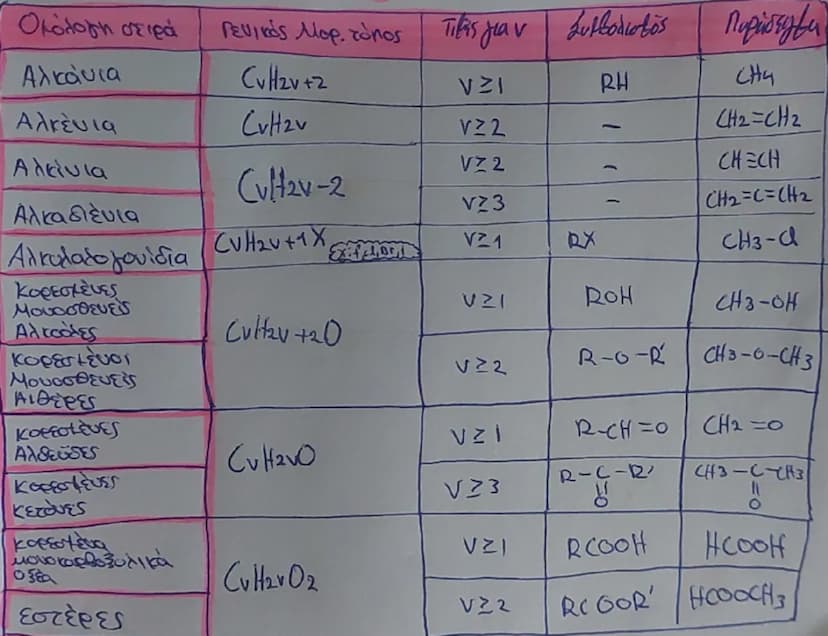 Ομόλογη σειρά Γενικός Μορ. τύπος Τιμές για ν Συμβολισμός Παράδειγμα
Αλκάνια CνH2ν+2 ν≥1 RH CH4
Αλκένια CνH2ν ν≥2 – CH2=CH2
Αλκίνια CνH2ν-2 ν≥2 – CH≡CH
Αλκαδιένια ν≥3 – CH2=C=CH2
Αλκυλαλογονίδια CνH2ν+1X ν≥1 RX CH3-Cl
Κορεσμένες
Μονοσθενείς
Αλκοόλες CνH2ν+2O ν≥1 ROH CH3-OH
Κορεσμένοι
Μονοσθενείς
Αιθέρες ν≥2 R-O-R' CH3-O-CH3
Κορεσμένες
Αλδεΰδες CνH2νO ν≥1 R-CH=O CH2=O
Κορεσμένες
κετόνες ν≥3 R-C-R' CH3-C-CH3
O O
Κορεσμένα
μονοκαρβοξυλικά
οξέα CνH2νO2 ν≥1 RCOOH HCOOH
Εστέρες ν≥2 RCOOR' HCOOCH3